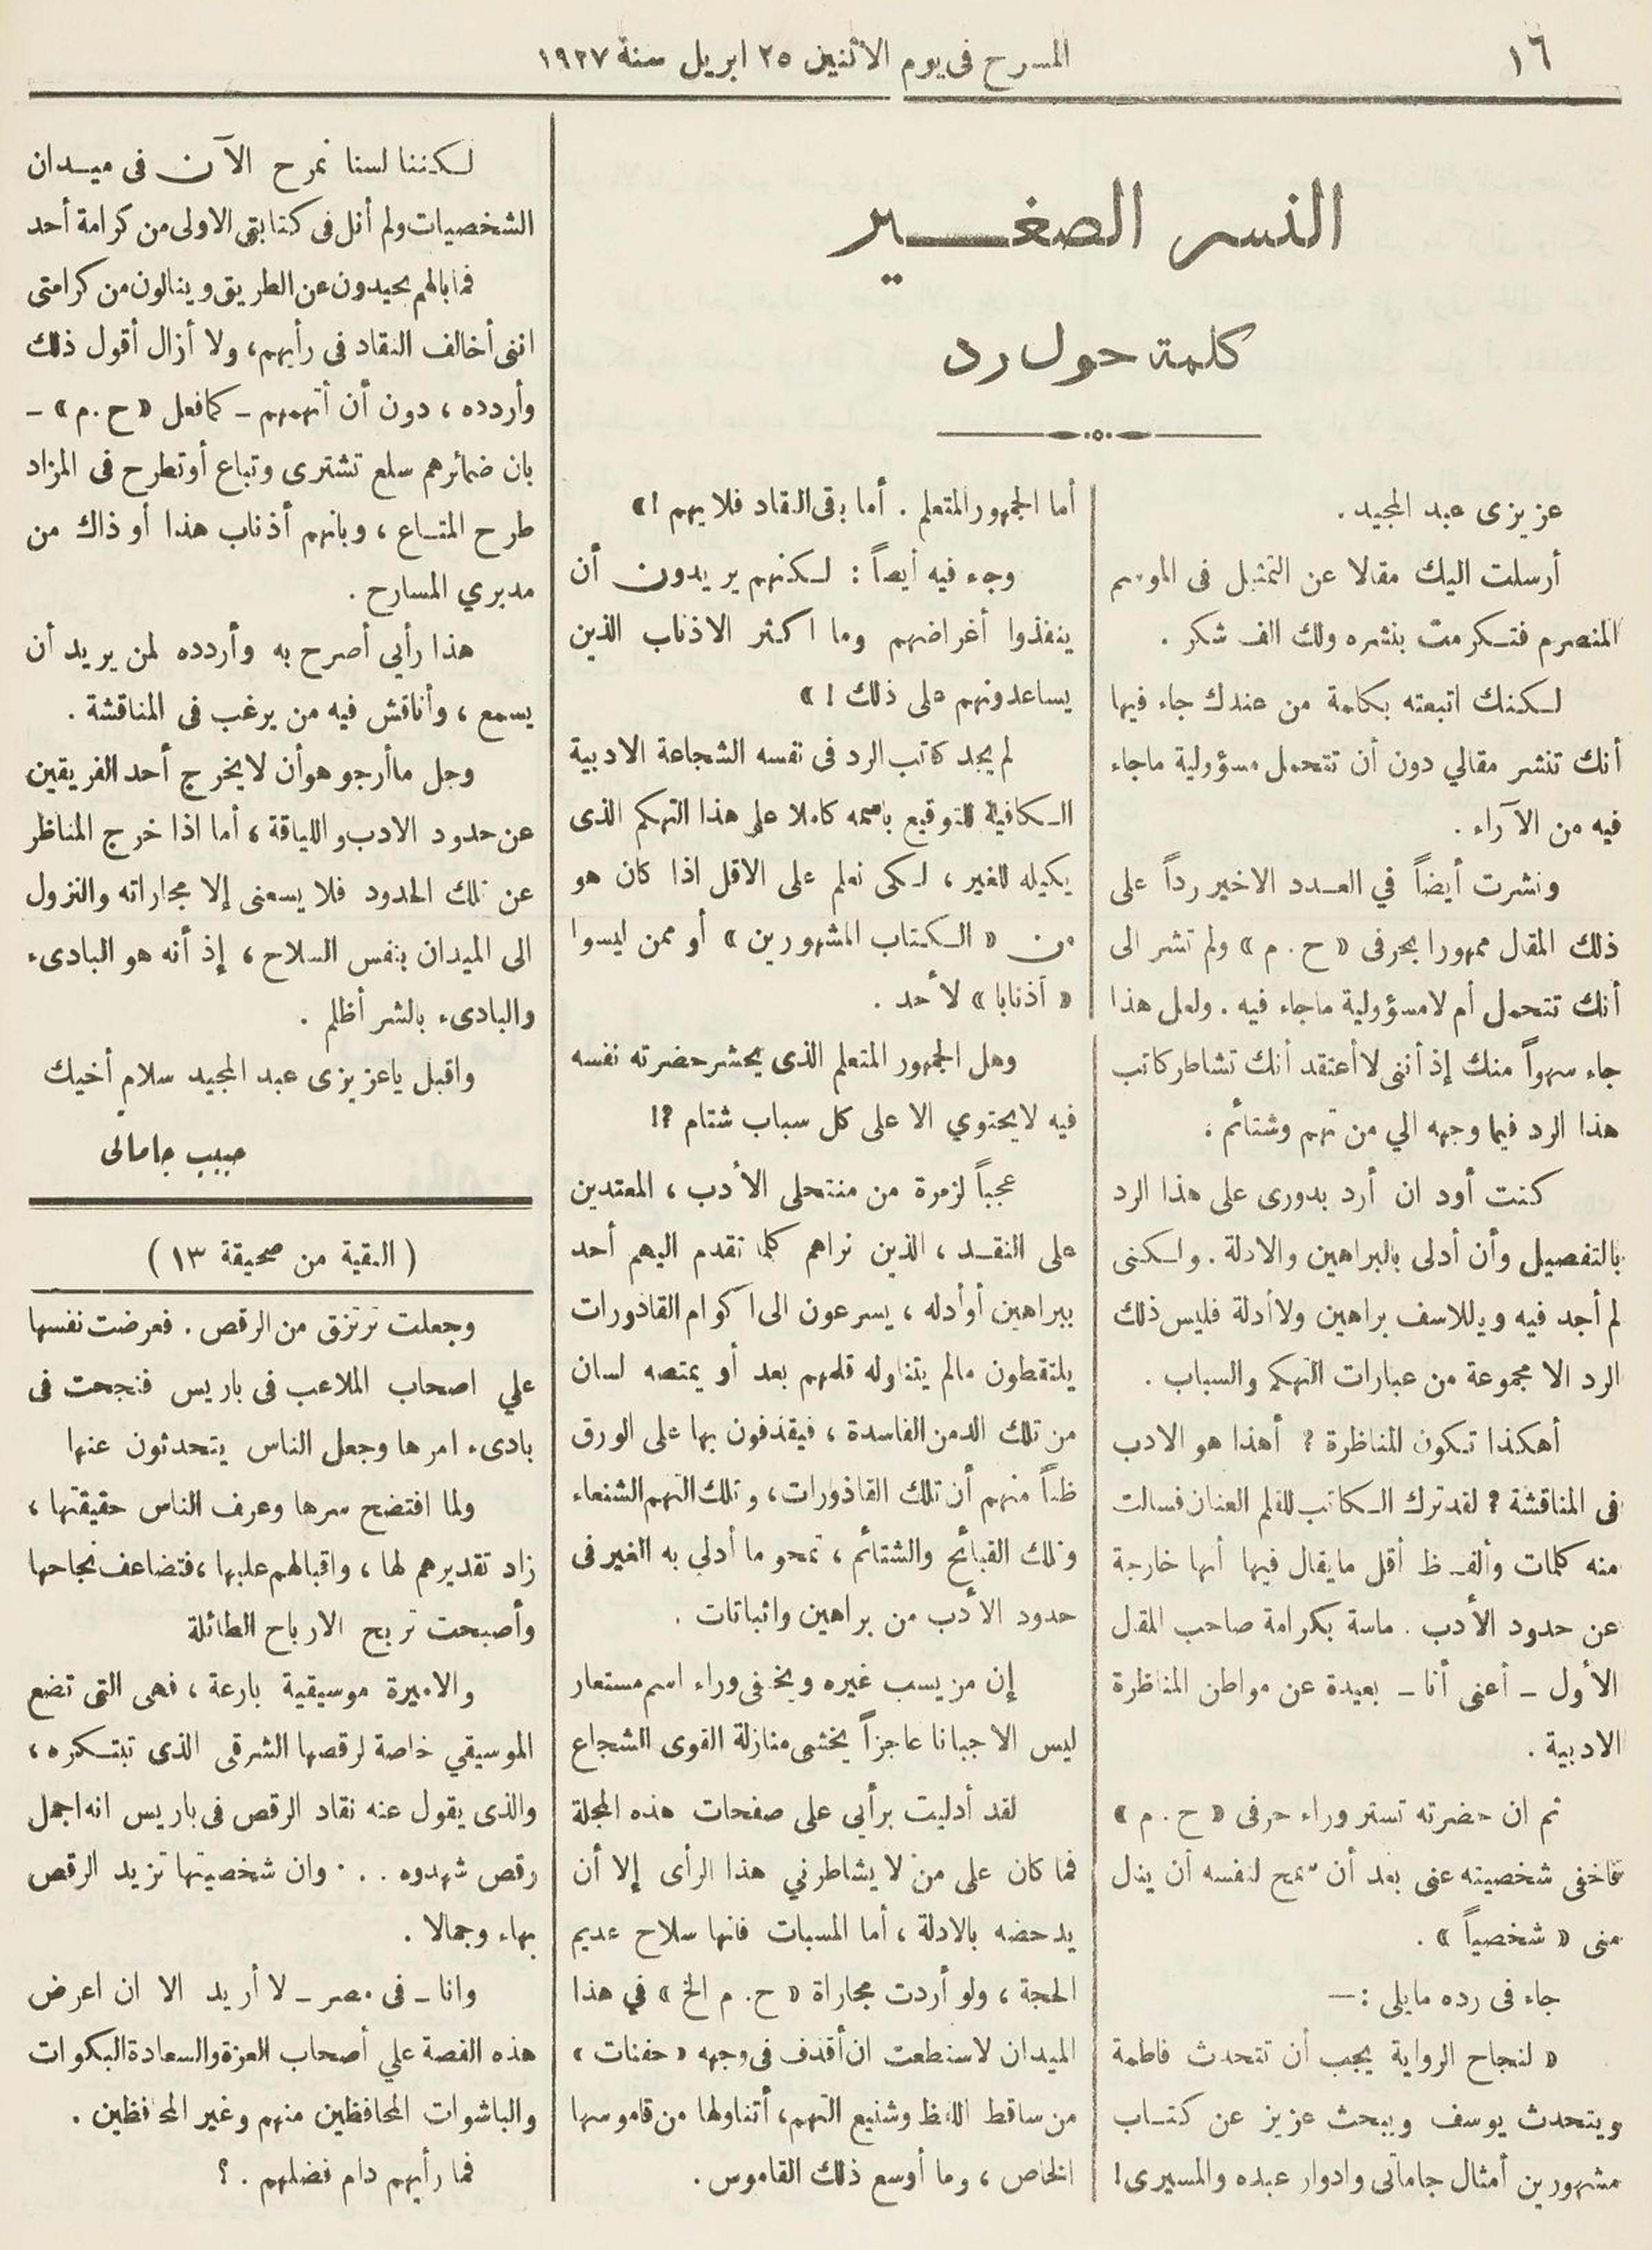 ١٦
المسرح فى يوم الاثنين ٢٥ ابريل سنة ١٩٢٧
النسر الصغير
كلمة حول رد
عزيزى عبد المجيد .
أرسلت اليك مقالا عن التمثيل فى الموسم
المنصرم فتكرمت بنشره ولك الف شكر .
لكنك اتبعته بكلمة من عندك جاء فيها
أنك تنشر مقالي دون أن تتحمل مسؤولية ماجاء
فيه من الآراء .
ونشرت أيضاً في العدد الاخير رداً على
ذلك المقال ممهورا بحرفى « ح . م » ولم تشر الى
أنك تتحمل أم لا مسؤولية ماجاء فيه . ولعل هذا
جاء سهواً منك إذ أننى لا أعتقد أنك تشاطر كاتب
هذا الرد فيما وجهه الي من تهم وشتائم .
كنت أود ان أرد بدورى على هذا الرد
بالتفصيل وأن أدلى بالبراهين والادلة . ولكنى
لم أجد فيه ويالاسف براهين ولا أدلة فليس ذلك
الرد الا مجموعة من عبارات التهكم والسباب .
أهكذا تكون المناظرة ؟ أهذا هو الادب
فى المناقشة ؟ لقد ترك الكاتب للقلم العنان فسالت
منه كلمات وألفاظ أقل مايقال فيها أنها خارجة
عن حدود الأدب . ماسة بكرامة صاحب المقال
الأول ـ أعنى أنا ـ بعيدة عن مواطن المناظرة
الادبية .
ثم ان حضرته تستر وراء حرفى « ح . م »
فاخفى شخصيته عنى بعد أن سمح لنفسه أن ينال
منى « شخصياً » .
جاء فى رده مايلى : —
« لنجاح الرواية يجب أن تتحدث فاطمة
ويتحدث يوسف ويبحث عزيز عن كتاب
مشهورين أمثال جاماتى وادوار عبده والمسيرى !
أما الجمهور المتعلم . أما بقى النقاد فلا يهم ! »
وجاء فيه أيضاً : لكنهم يريدون أن
ينفذوا أغراضهم وما اكثر الاذناب الذين
يساعدونهم على ذلك ! »
لم يجد كاتب الرد فى نفسه الشجاعة الادبية
الكافية للتوقيع باسمه كاملا على هذا التهكم الذى
يكيله للغير ، لكى نعلم على الاقل اذا كان هو
من « الكتاب المشهورين » أو ممن ليسوا
« أذنابا » لأحد .
وهل الجمهور المتعلم الذى يحشر حضرته نفسه
فيه لايحتوي الا على كل سباب شتام ؟!
عجباً لزمرة من منتحلى الأدب ، المعتدين
على النقد ، الذين نراهم كلما تقدم اليهم أحد
ببراهين أو أدله ، يسرعون الى اكوام القاذورات
يلتقطون مالم يتناوله قلمهم بعد أو يمتصه لسان
من تلك الدمن الفاسدة ، فيقذفون بها على الورق
ظناً منهم أن تلك القاذورات ، وتلك التهم الشنعاء
وتلك القبائح والشتائم ، تمحو ما أدلي به الغير فى
حدود الأدب من براهين واثباتات .
إن من يسب غيره ويختفى وراء اسم مستعار
ليس الا جبانا عاجزاً يخشى منازلة القوى الشجاع
لقد أدليت برأيي على صفحات هذه المجلة
فما كان على من لا يشاطرني هذا الرأى إلا أن
يدحضه بالادلة ، أما المسبات فانها سلاح عديم
الحجة ، ولو أردت مجاراة « ح . م الخ » في هذا
الميدان لاستطعت ان أقذف فى وجهه « حفنات »
من ساقط اللفظ وشنيع التهم، أتناولها من قاموسها
الخاص ، وما أوسع ذلك القاموس .
لكننا لسنا نمرح الآن فى ميدان
الشخصيات ولم أنل فى كتابتى الاولى من كرامة أحد
فما بالهم يحيدون عن الطريق وينالون من كرامتى
اننى أخالف النقاد فى رأيهم، ولا أزال أقول ذلك
وأردده ، دون أن أتهمهم ـ كما فعل « ح . م » ـ
بان ضمائرهم سلع تشترى وتباع أو تطرح فى المزاد
طرح المتاع ، وبانهم أذناب هذا أو ذاك من
مديري المسارح .
هذا رأيي أصرح به وأردده لمن يريد أن
يسمع ، وأناقش فيه من يرغب فى المناقشة .
وجل ما أرجو هو أن لا يخرج أحد الفريقين
عن حدود الادب واللياقة ، أما اذا خرج المناظر
عن تلك الحدود فلا يسعنى إلا مجاراته والنزول
الى الميدان بنفس السلاح ، إذ أنه هو البادىء
والبادىء بالشر أظلم .
واقبل ياعزيزى عبد المجيد سلام أخيك
حبيب جاماتى
( البقية من صحيفة ١٣ )
وجعلت ترتزق من الرقص . فعرضت نفسها
علي اصحاب الملاعب فى باريس فنجحت فى
بادىء امرها وجعل الناس يتحدثون عنها
ولما افتضح سرها وعرف الناس حقيقتها ،
زاد تقديرهم لها ، واقبالهم عليها ، فتضاعف نجاحها
وأصبحت تربح الارباح الطائلة
والاميرة موسيقية بارعة ، فهى التى تضع
الموسيقي خاصة لرقصها الشرقى الذى تبتكره ،
والذى يقول عنه نقاد الرقص فى باريس انه اجمل
رقص شهدوه . . . وان شخصيتها تزيد الرقص
بهاء وجمالا .
وانا ـ فى مصر ـ لا أريد الا ان اعرض
هذه القصة علي أصحاب العزة والسعادة البكوات
والباشوات المحافظين منهم وغير المحافظين .
فما رأيهم دام فضلهم . ؟